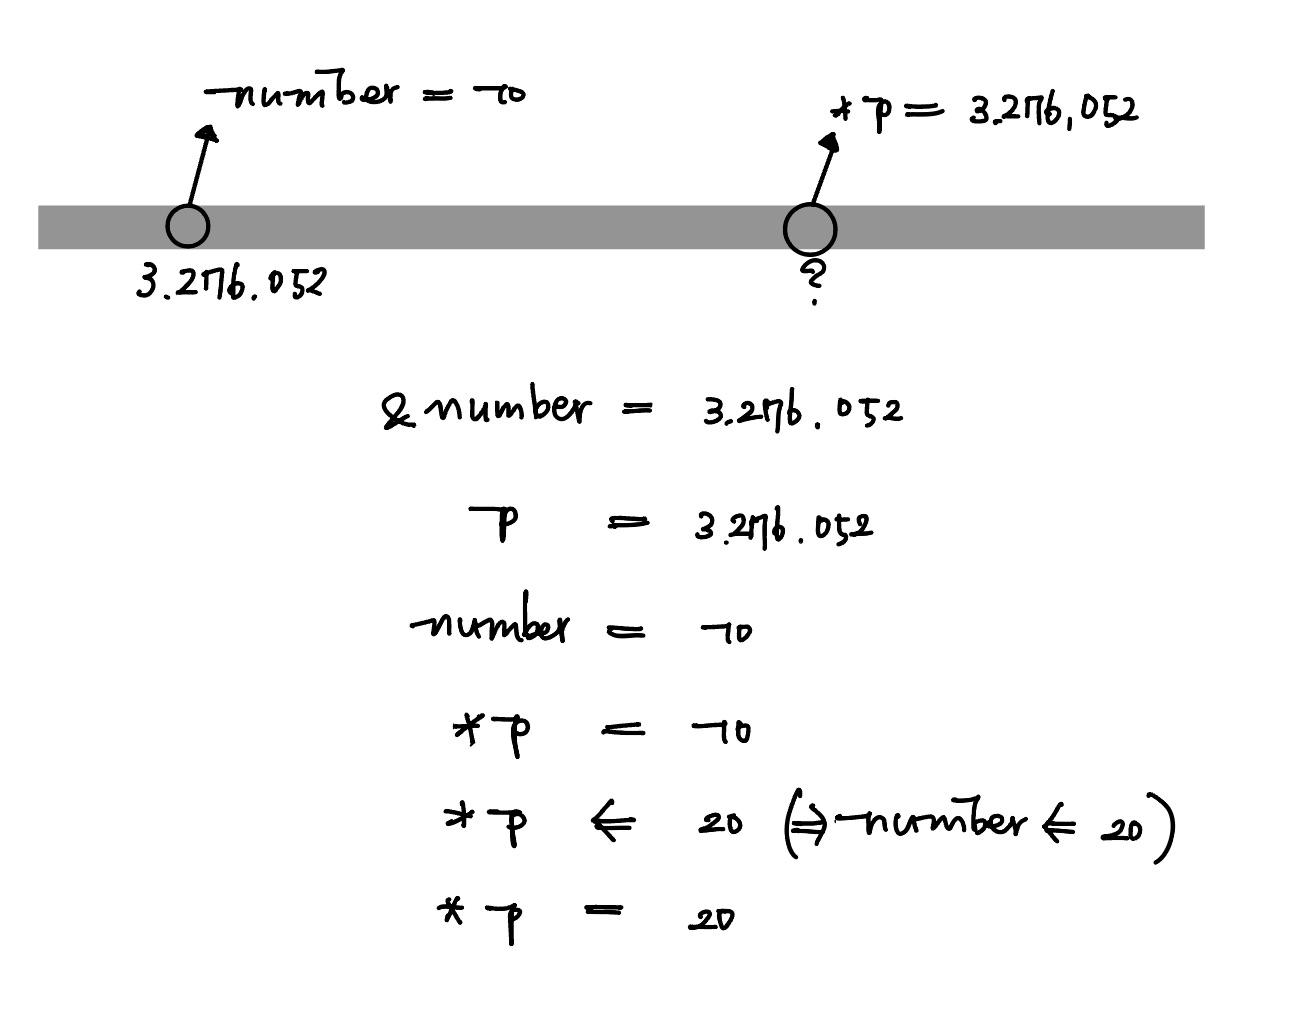 number = 10
*p = 3.276,052
3.276.052
?
&number = 3.276.052
p = 3.276.052
number = 10
*p = 10
*p ⇐ 20 (⇒ number ⇐ 20)
*p = 20